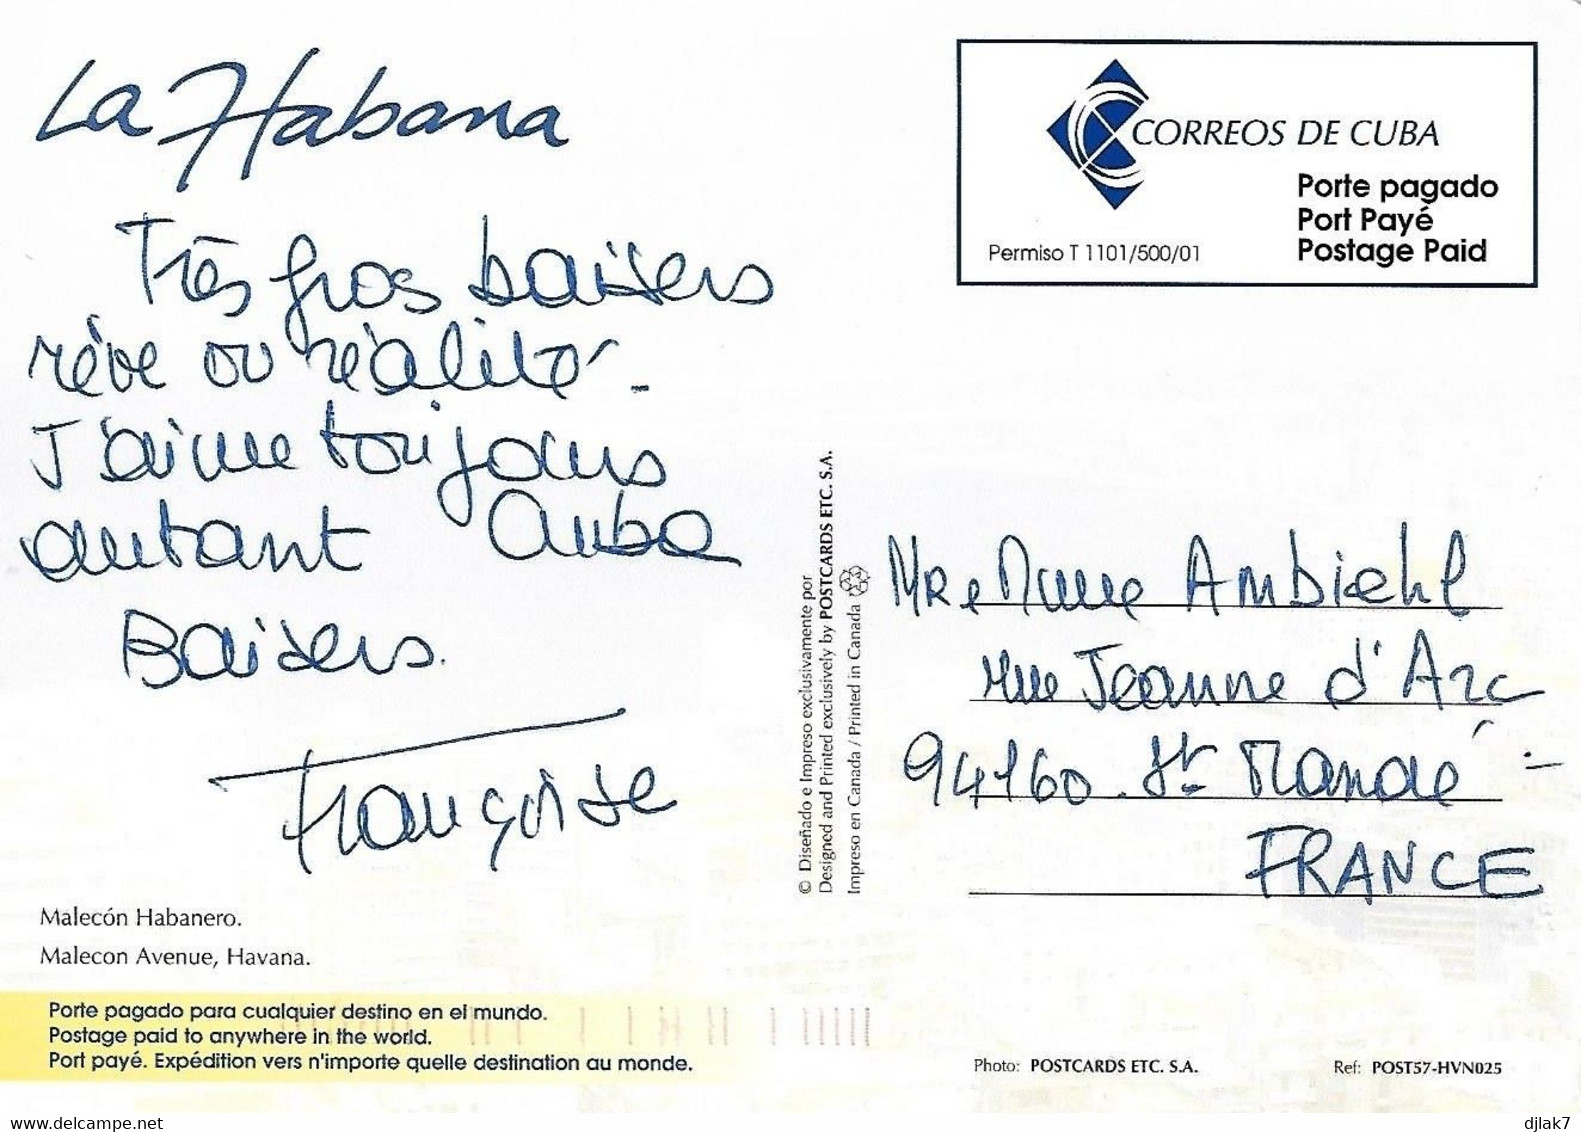 La Habana
Très gros baisers
rêve ou réalité -
J'aime toujours
autant Cuba
Baisers.
Françoise
Malecón Habanero.
Malecon Avenue, Havana.
Porte pagado para cualquier destino en el mundo.
Postage paid to anywhere in the world.
Port payé. Expédition vers n'importe quelle destination au monde.
© Diseñado e Impreso exclusivamente por
Designed and Printed exclusively by POSTCARDS ETC. S.A.
Impreso en Canada / Printed in Canada
CORREOS DE CUBA
Porte pagado
Port Payé
Postage Paid
Permiso T 1101/500/01
MR e Mme Ambiehl
rue Jeanne d'Arc
94160. St Mandé -
FRANCE
Photo: POSTCARDS ETC. S.A.
Ref: POST57-HVN025
delcampe.net
djlak7